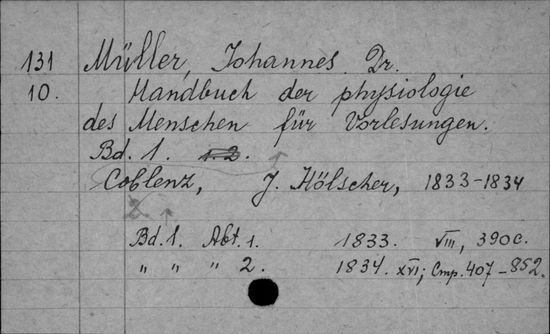 131 Müller, Johannes. Dr.
10. Handbuch der physiologie
des Menschen für Vorlesungen.
Bd. 1. 1-2.
Coblenz, J. Hölscher, 1833-1834
2.
Bd. 1. Abt. 1. 1833. VIII, 390 c.
" " " 2. 1834. XVI; Cmp. 407-852.